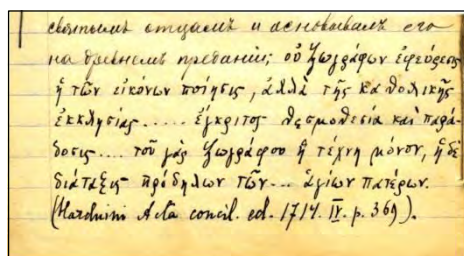 святымъ отцамъ и основывалъ его
на древнемъ преданіи; οὐ ζωγράφων ἐφεύρεσις
ἡ τῶν εἰκόνων ποίησις, ἀλλὰ τῆς καθολικῆς
ἐκκλησίας..... ἔγκριτος θεσμοθεσία καὶ παρά-
δοσις.... τοῦ γὰρ ζωγράφου ἡ τέχνη μόνον, ἡ δὲ
διάταξις πρόδηλων τῶν... ἁγίων πατέρων.
(Harduini Acta concil. ed. 1714. IV. p. 369).